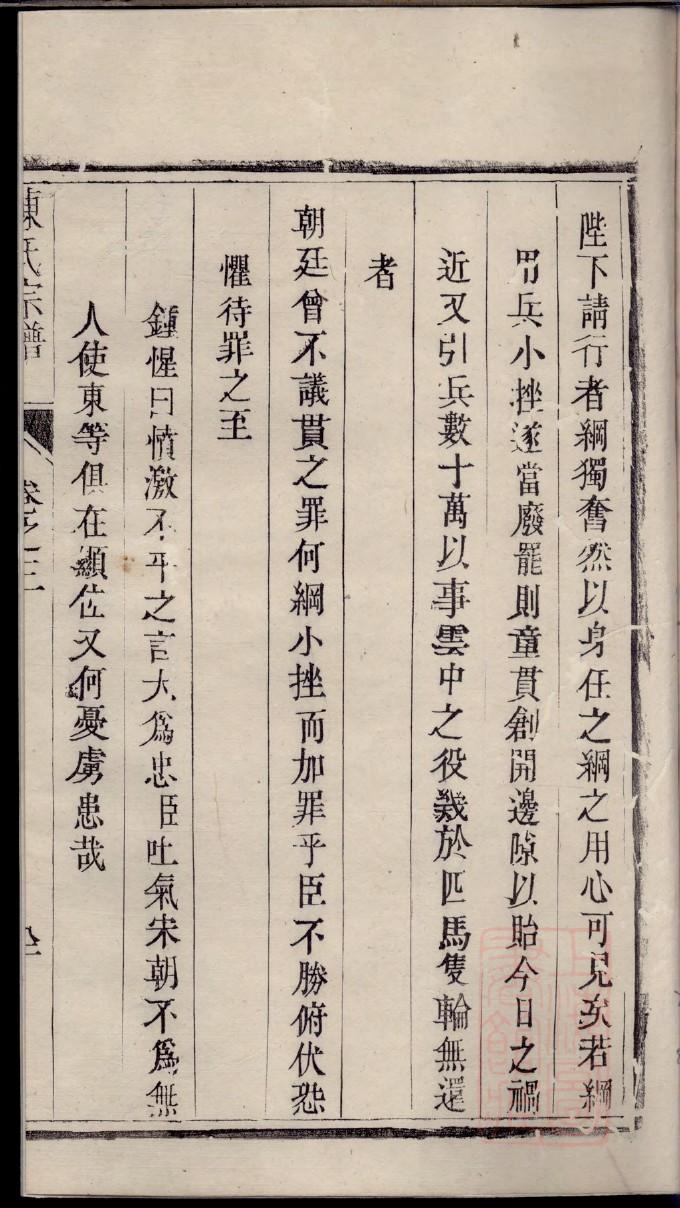 陛下請行者綱獨奮然以身任之綱之用心可見矣若綱
用兵小挫遂當廢罷則童貫創開邊隙以貽今日之禍
近又引兵數十萬以事雲中之役幾於匹馬隻輪無還
者
朝廷曾不議貫之罪何綱小挫而加罪乎臣不勝俯伏恐
懼待罪之至
鍾惺曰憤激不平之言大爲忠臣吐氣宋朝不爲無
人使東等俱在顯位又何憂虜患哉
陳氏宗譜
卷之三